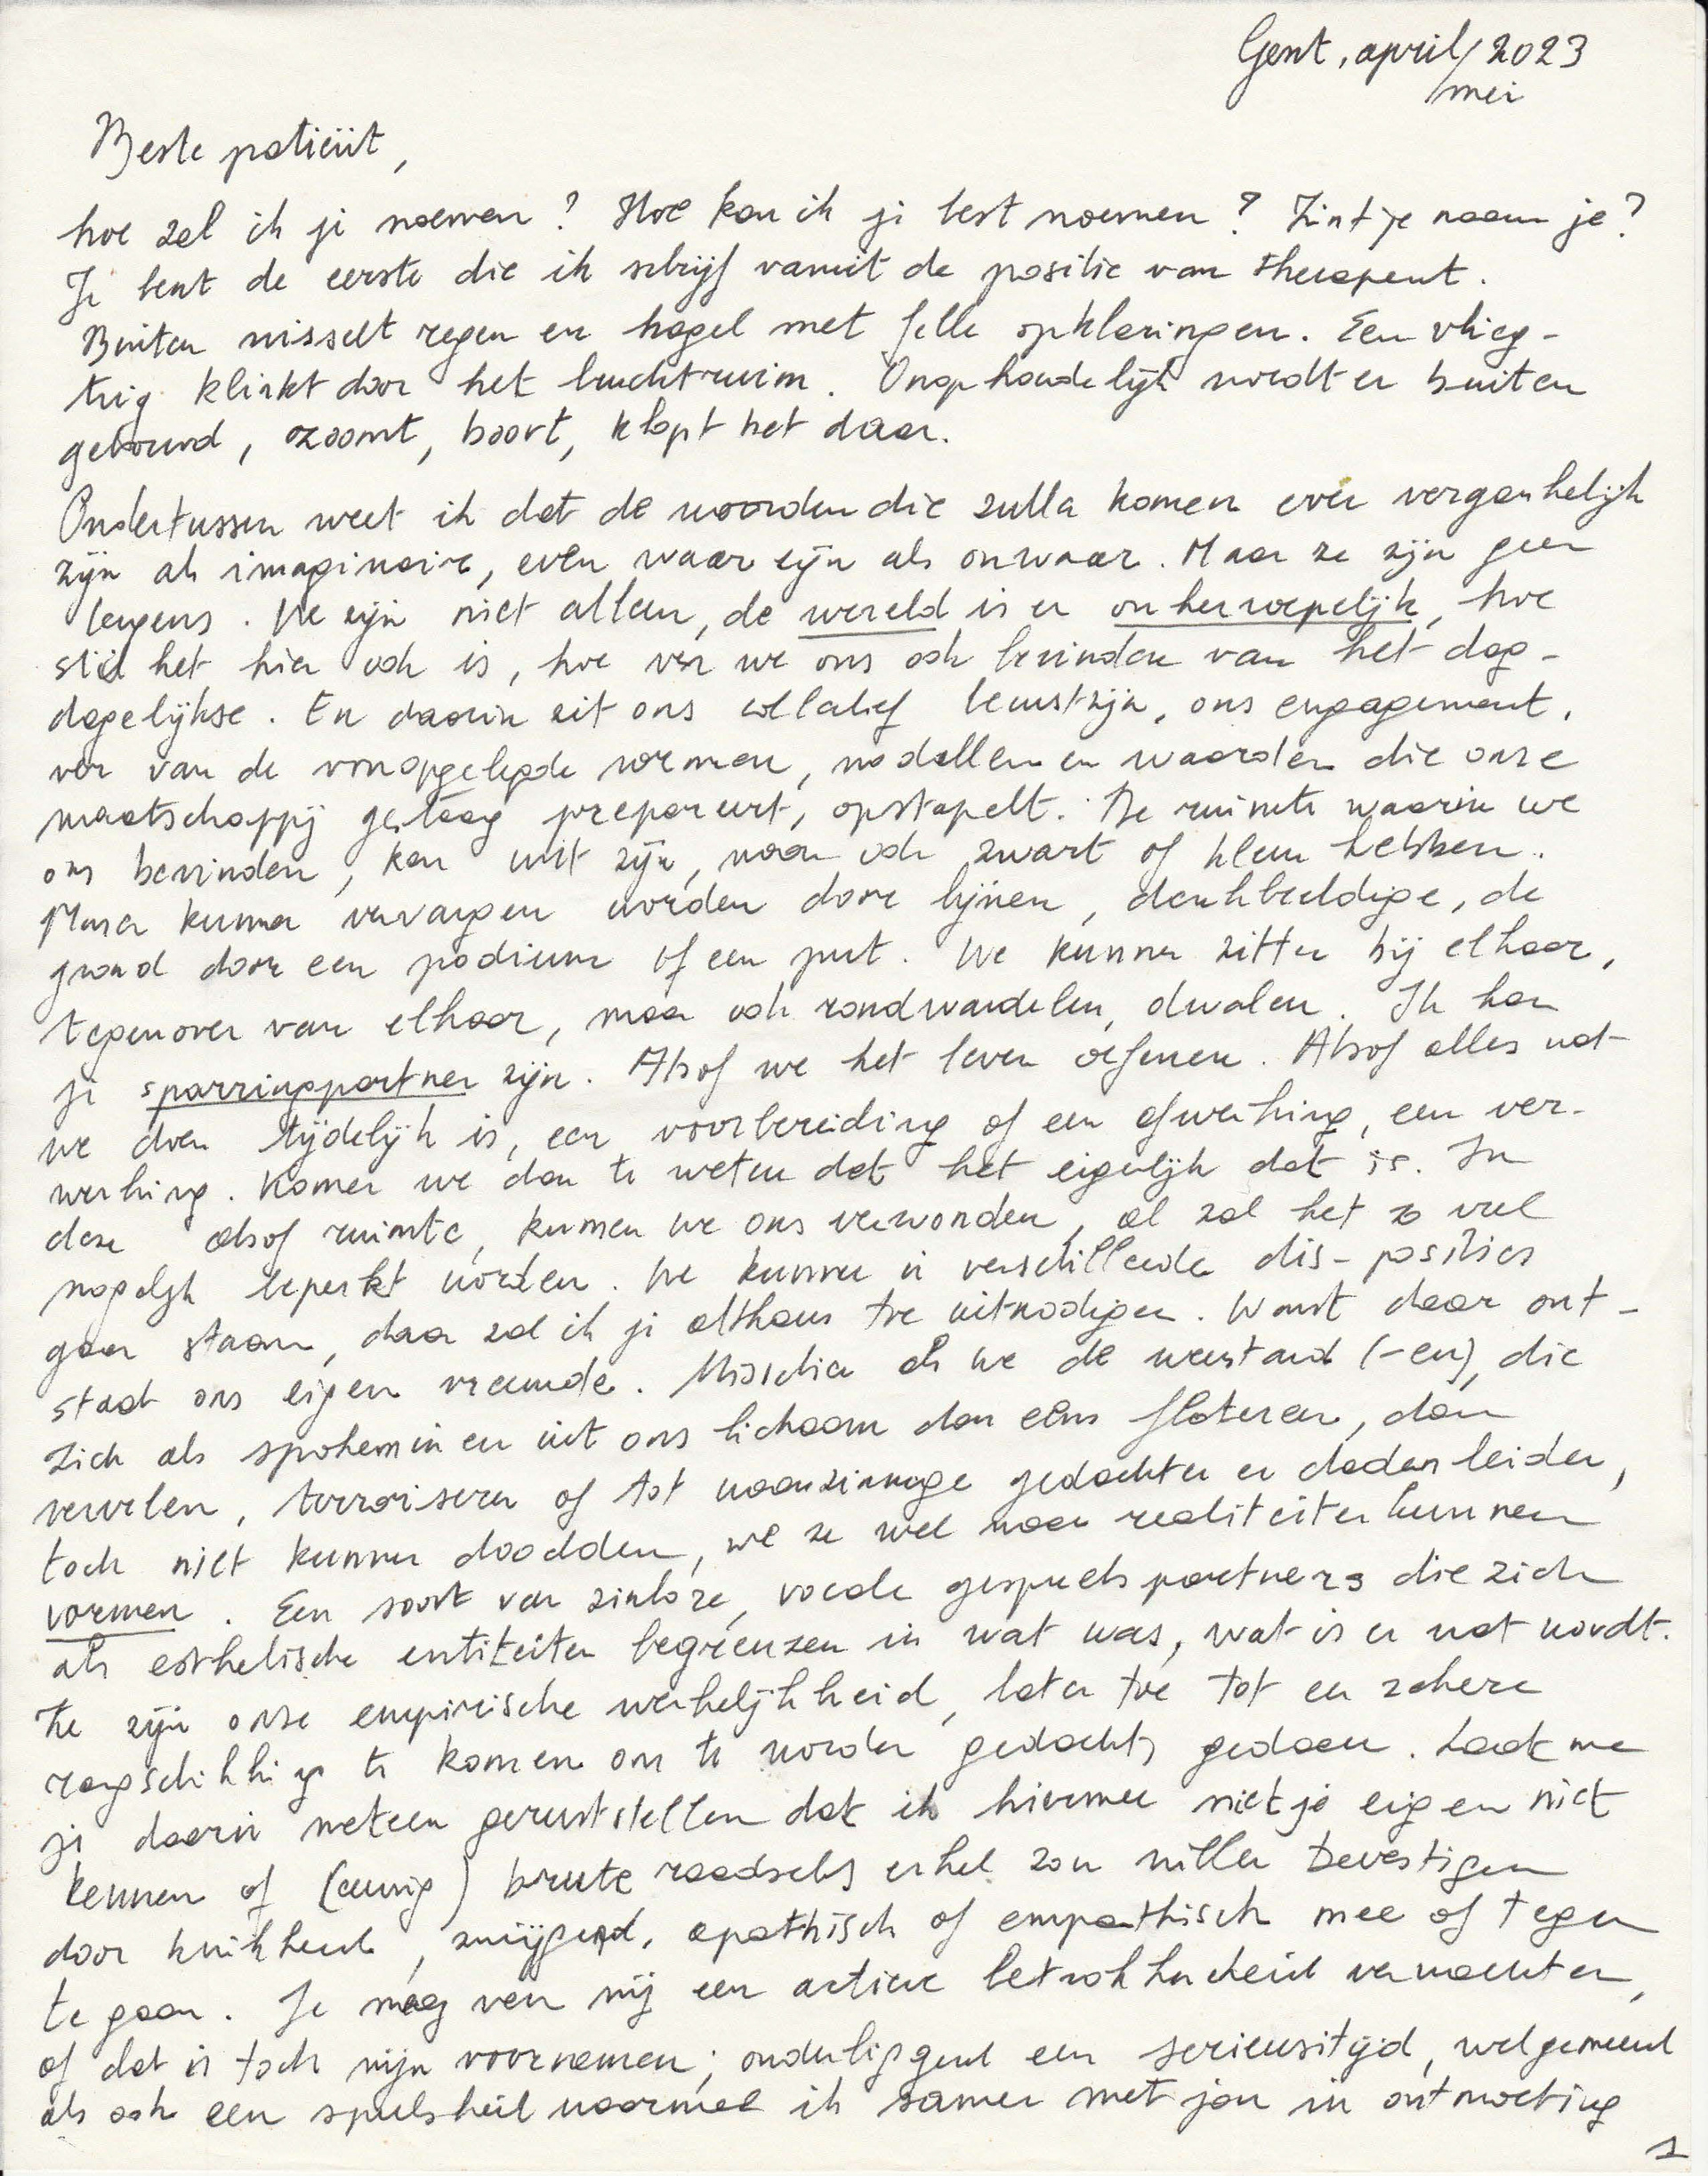 Gent, april/2023
/mei
Beste patiënt,
hoe zal ik je noemen? Hoe kan ik je best noemen? Zint je naam je?
Je bent de eerste die ik schrijf vanuit de positie van therapeut.
Buiten wisselt regen en hagel met felle opklaringen. Een vlieg-
tuig klinkt door het luchtruim. Onophoudelijk wordt er buiten
gebouwd, zoomt, boort, klopt het daar.
Ondertussen weet ik dat de woorden die zullen komen even vergankelijk
zijn als imaginair, even waar zijn als onwaar. Maar ze zijn geen
leugens. We zijn niet alleen, de wereld is er onherroepelijk, hoe
stil het hier ook is, hoe ver we ons ook bevinden van het dag-
dagelijkse. En daarin zit ons collectief bewustzijn, ons engagement,
ver van de vooropgelegde normen, modellen en waarden die onze
maatschappij gestaag prepareert, opstapelt. De ruimte waarin we
ons bevinden, kan wit zijn, maar ook zwart of kleur hebben.
Muren kunnen vervangen worden door lijnen, denkbeeldige, de
grond door een podium of een put. We kunnen zitten bij elkaar,
tegenover van elkaar, maar ook rondwandelen, dwalen. Ik kan
je sparringpartner zijn. Alsof we het leven oefenen. Alsof alles wat
we doen tijdelijk is, een voorbereiding of een afwerking, een ver-
werking. Komen we dan te weten dat het eigenlijk dat is. In
deze alsof ruimte, kunnen we ons verwonden, al zal het zo veel
mogelijk beperkt worden. We kunnen in verschillende dis-posities
gaan staan, daar zal ik je althans toe uitnodigen. Want daar ont-
staat ons eigen vreemde. Misschien als we de weerstand (-en), die
zich als spoken in en uit ons lichaam dan eens flateren, dan
vervelen, terroriseren of tot waanzinnige gedachten en daden leiden,
toch niet kunnen doodden, we ze wel naar realiteiten kunnen
vormen. Een soort van zinloze, voede gesprekspartners die zich
als esthetische entiteiten begrenzen in wat was, wat is en wat wordt.
Ze zijn onze empirische werkelijkheid, laten toe tot een zekere
rangschikking te komen om te worden gedacht, gedaan. Laat me
je daarin meteen geruststellen dat ik hiermee niet je eigen niet
kennen of (eeuwig) brute raadsels enkel zou willen bevestigen
door knikkend, zwijgend, apathisch of empathisch mee of tegen
te gaan. Je mag van mij een actieve betrokkenheid verwachten,
of dat is toch mijn voornemen; onderliggend een serieusitijd, welgemeend
als ook een speelsheid waarmee ik samen met jou in ontmoeting
1